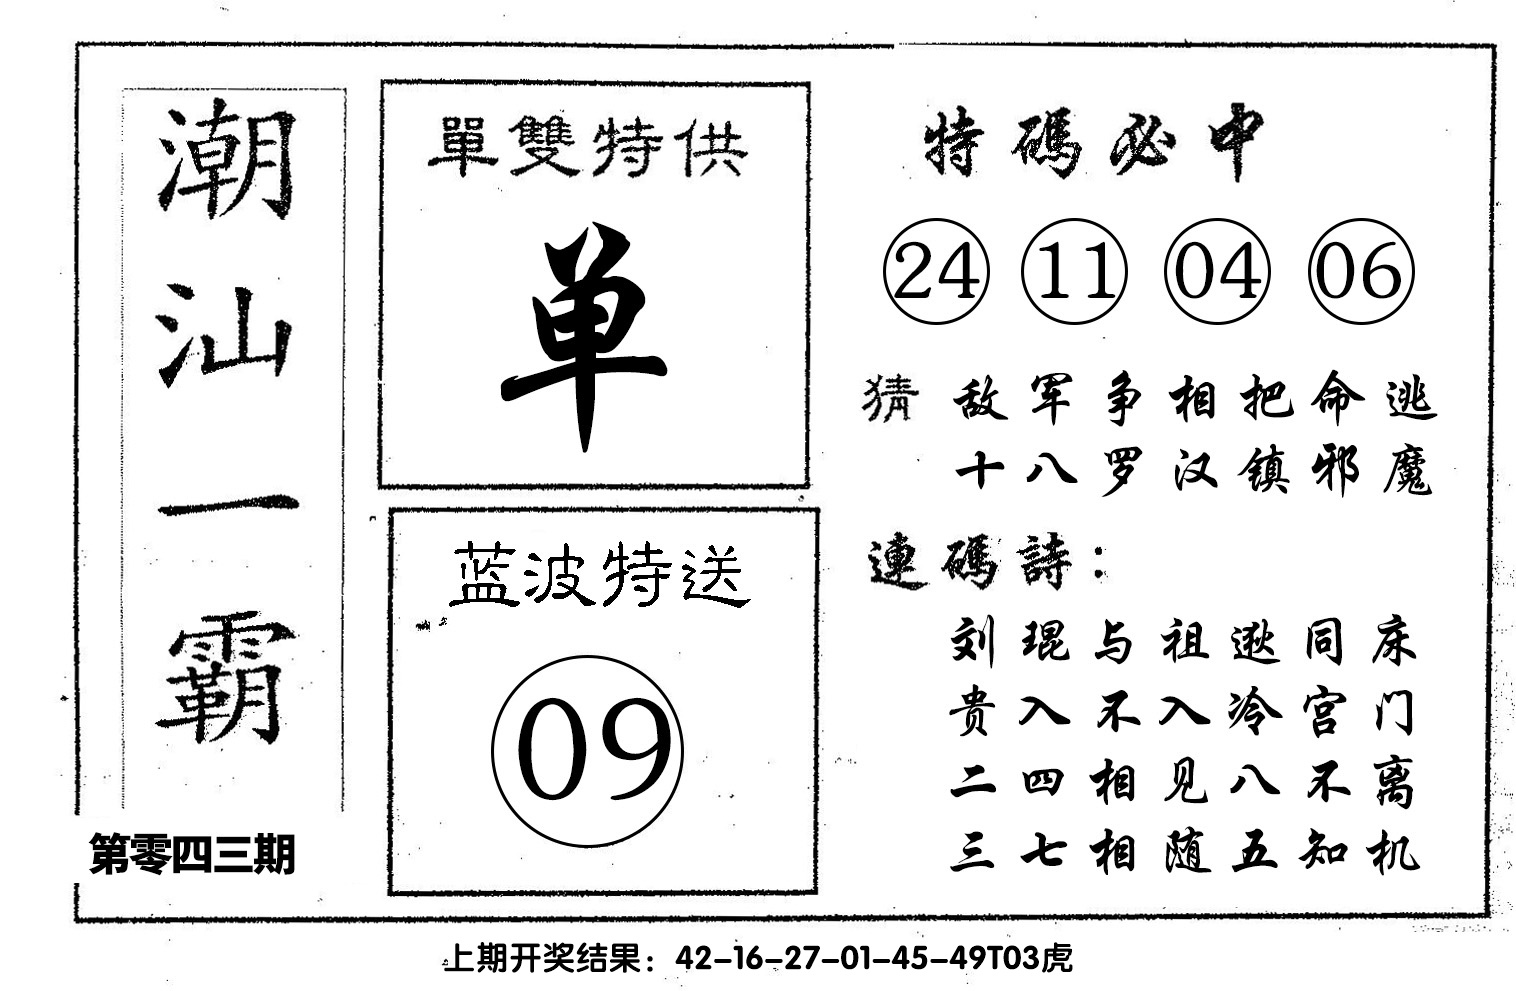 潮汕一霸
第零四三期
單雙特供
单
蓝波特送
09
特碼必中
24 11 04 06
猜 敌军争相把命逃
十八罗汉镇邪魔
連碼詩：
刘琨与祖逖同床
贵入不入冷宫门
二四相见八不离
三七相随五知机
上期开奖结果：42-16-27-01-45-49T03虎